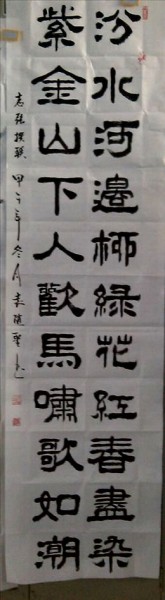 汾水河邊柳綠花紅春盡染
紫金山下人歡馬嘯歌如潮
志強撰聯 甲午年冬月